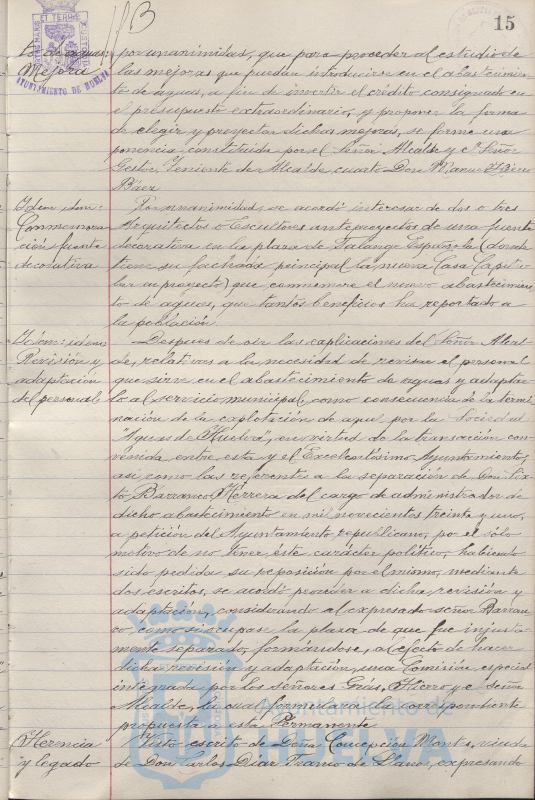 15
to de aguas
Mejora
AYUNTAMIENTO DE HUELVA
por unanimidad, que para proceder al estudio de
las mejoras que puedan introducirse en el abastecimien-
to de aguas, a fin de invertir el crédito consignado en
el presupuesto extraordinario, y proponer la forma
de elegir y proyectar dichas mejoras, se forme una
ponencia, constituida por el Señor Alcalde y el Señor
Gestor, Teniente de Alcalde cuarto Don
Báez
Idem idem:
Conmemora-
ción fuente
decorativa
Por unanimidad, se acordó interesar de dos o tres
Arquitectos o Escultores anteproyectos de una fuente
decorativa en la plaza de Falange Española (donde
tiene su fachada principal la nueva Casa Capitu-
lar en proyecto) que conmemore el nuevo abastecimien-
to de aguas, que tantos beneficios ha reportado a
la población.
Idem: idem
Revisión y
adaptación
del personal
Despues de oir las explicaciones del Señor Alcal-
de, relativas a la necesidad de revisar el personal
que sirve en el abastecimiento de aguas y adaptar-
le al servicio municipal, como consecuencia de la termi-
nación de la explotación de aquel por la Sociedad
"Aguas de Huelva", en virtud de la transacción con-
venida entre esta y el Excelentísimo Ayuntamiento,
así como las referentes a la separación de Don Six-
to Barranco Herrera del cargo de administrador de
dicho abastecimiento en mil novecientos treinta y uno,
a petición del Ayuntamiento republicano, por el sólo
motivo de no tener éste carácter político, habiendo
sido pedida su reposición por el mismo, mediante
dos escritos, se acordó proceder a dicha revisión y
adaptación, considerando al expresado señor Barran-
co como si ocupase la plaza de que fue injusta-
mente separado, formándose, al efecto de hacer
dicha revisión y adaptación, una Comisión especial
integrada por los señores Grás, Hierro y el Señor
Alcalde, la cual formulará la correspondiente
propuesta a esta Permanente.
Ayuntamiento de
HUELVA
Herencia
y legado
Visto escrito de Doña Concepción Montis, viuda
de Don Carlos Díaz Franco de Llanos, expresando